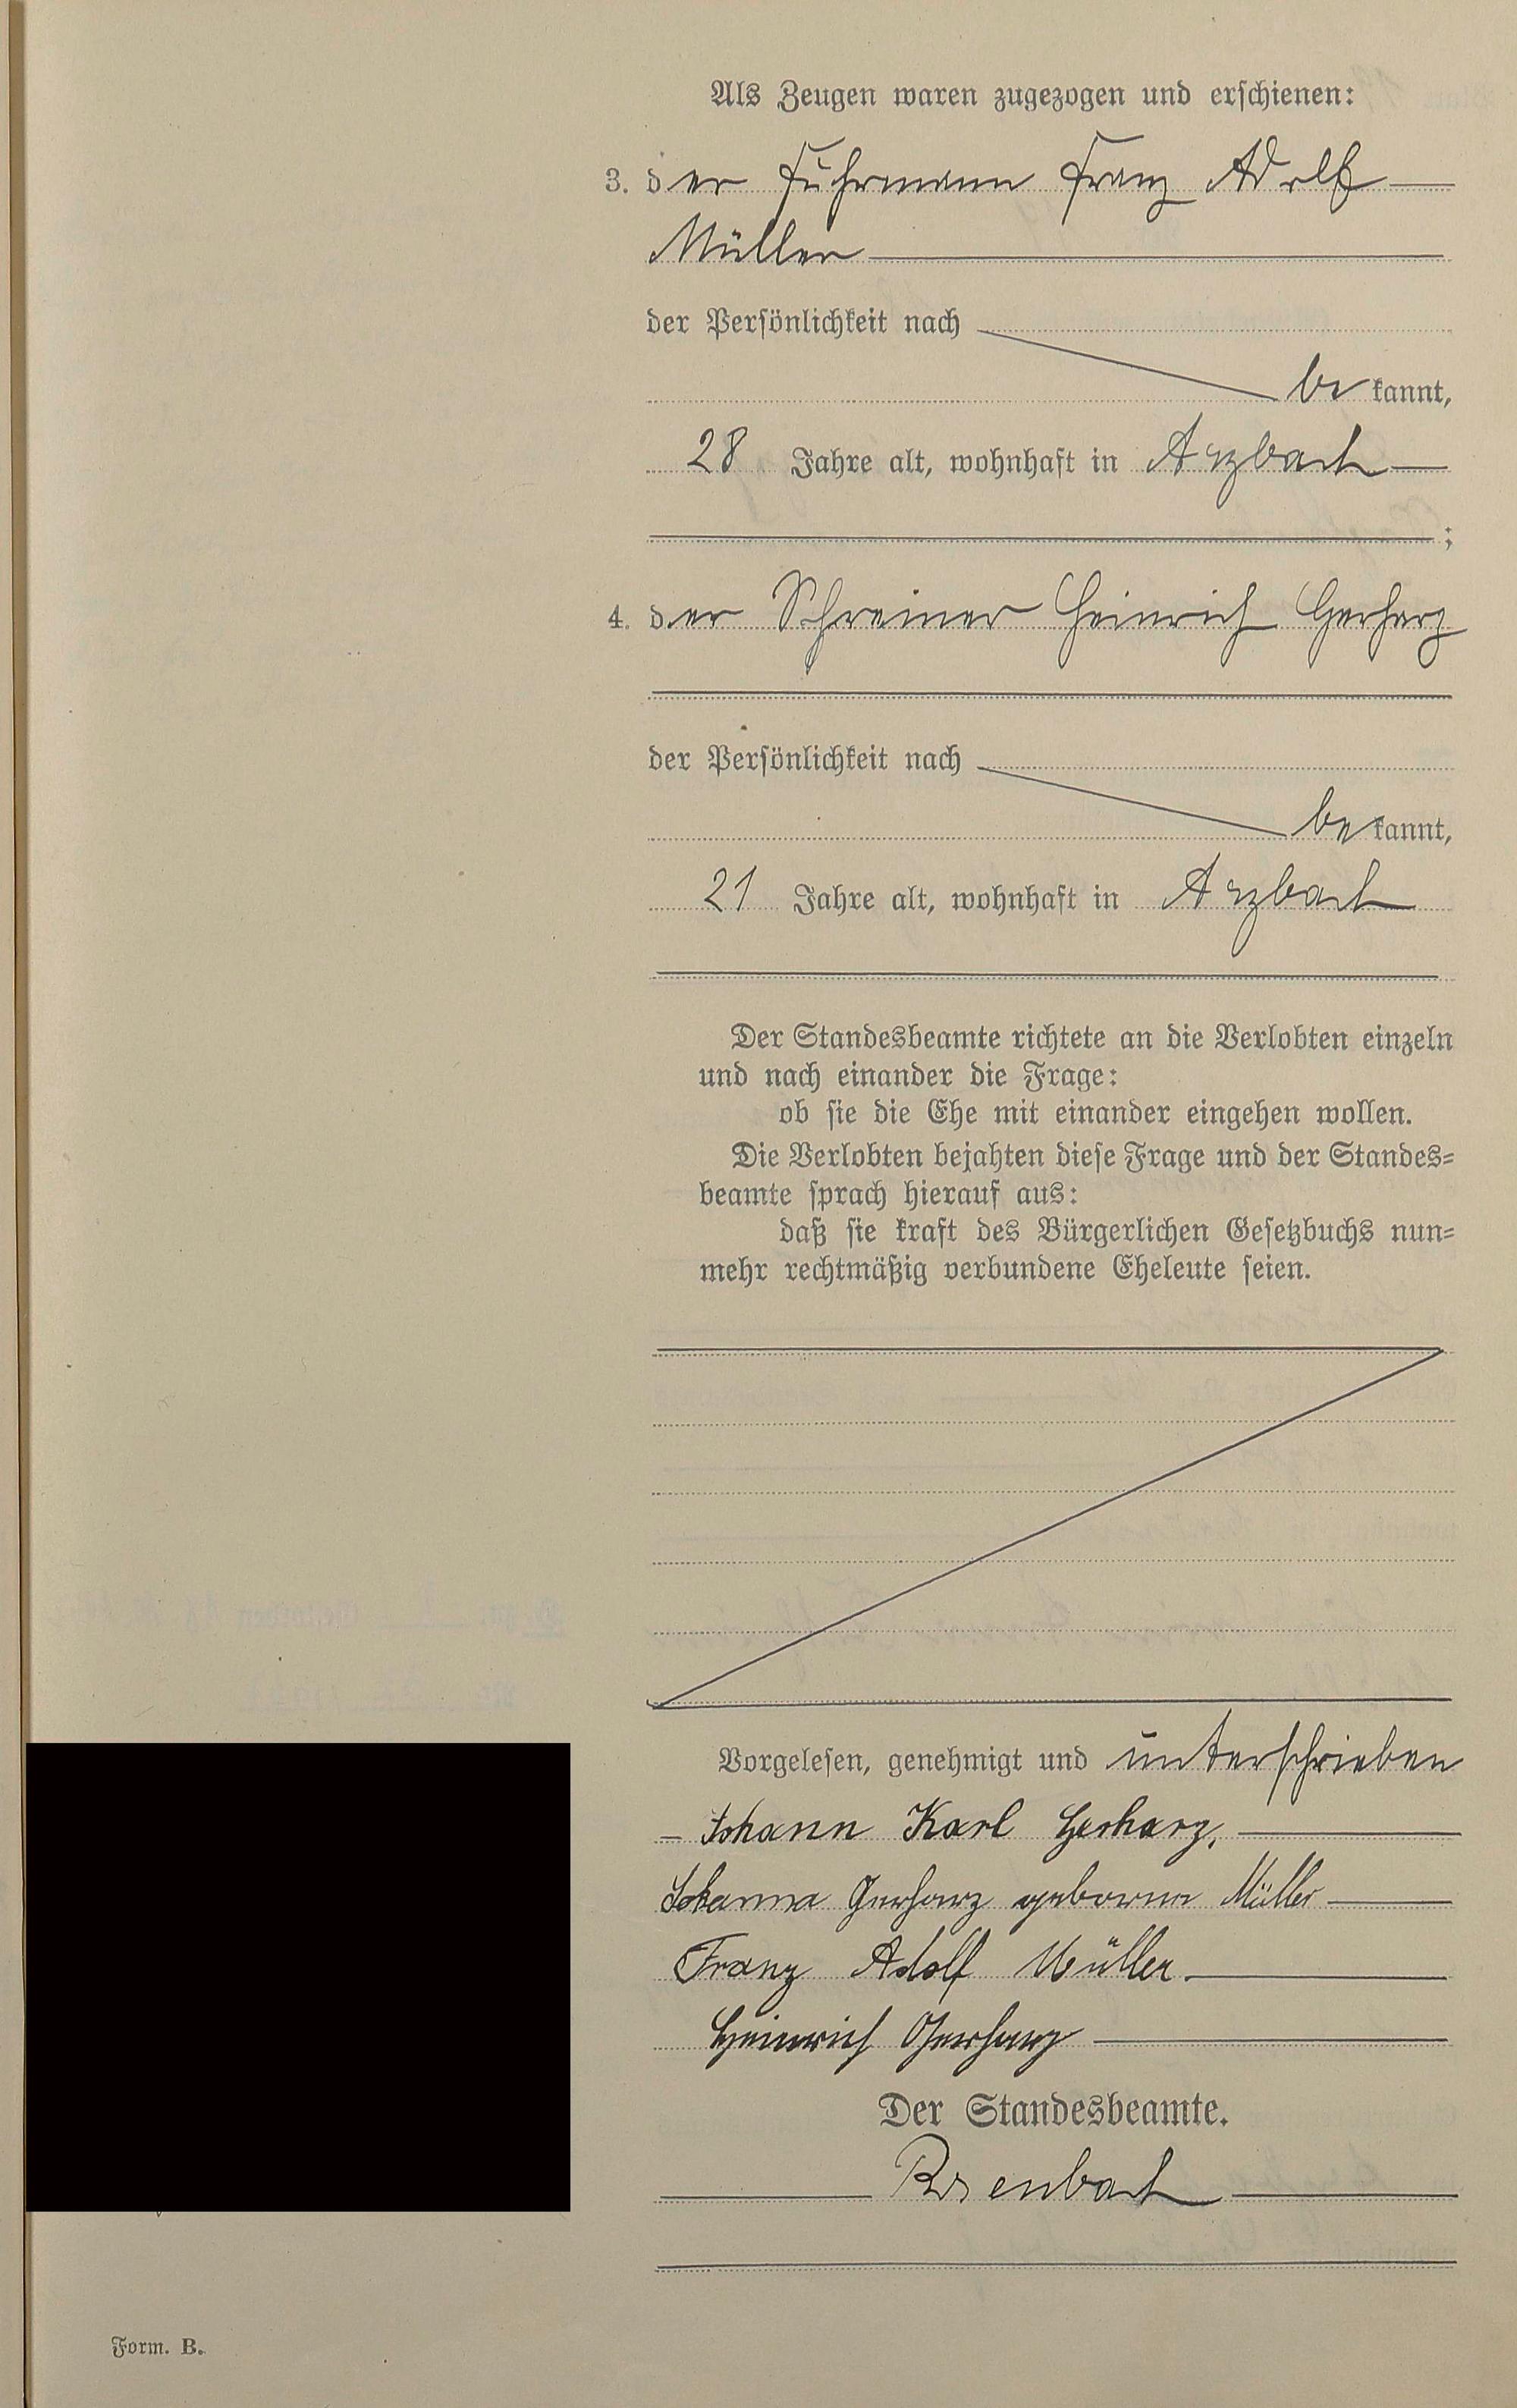 Als Zeugen waren zugezogen und erschienen:
3. der Fuhrmann Franz Adolf
Müller
der Persönlichkeit nach
bekannt,
28 Jahre alt, wohnhaft in Arzbach
;
4. der Schreiner Heinrich Gerharz
der Persönlichkeit nach
bekannt,
21 Jahre alt, wohnhaft in Arzbach
Der Standesbeamte richtete an die Verlobten einzeln
und nach einander die Frage:
ob sie die Ehe mit einander eingehen wollen.
Die Verlobten bejahten diese Frage und der Standes=
beamte sprach hierauf aus:
daß sie kraft des Bürgerlichen Gesetzbuchs nun=
mehr rechtmäßig verbundene Eheleute seien.
Vorgelesen, genehmigt und unterschrieben
Johann Karl Gerharz.
Johanna Gerharz geborene Müller
Franz Adolf Müller
Heinrich Gerharz
Der Standesbeamte.
Rosenbach
Form. B.